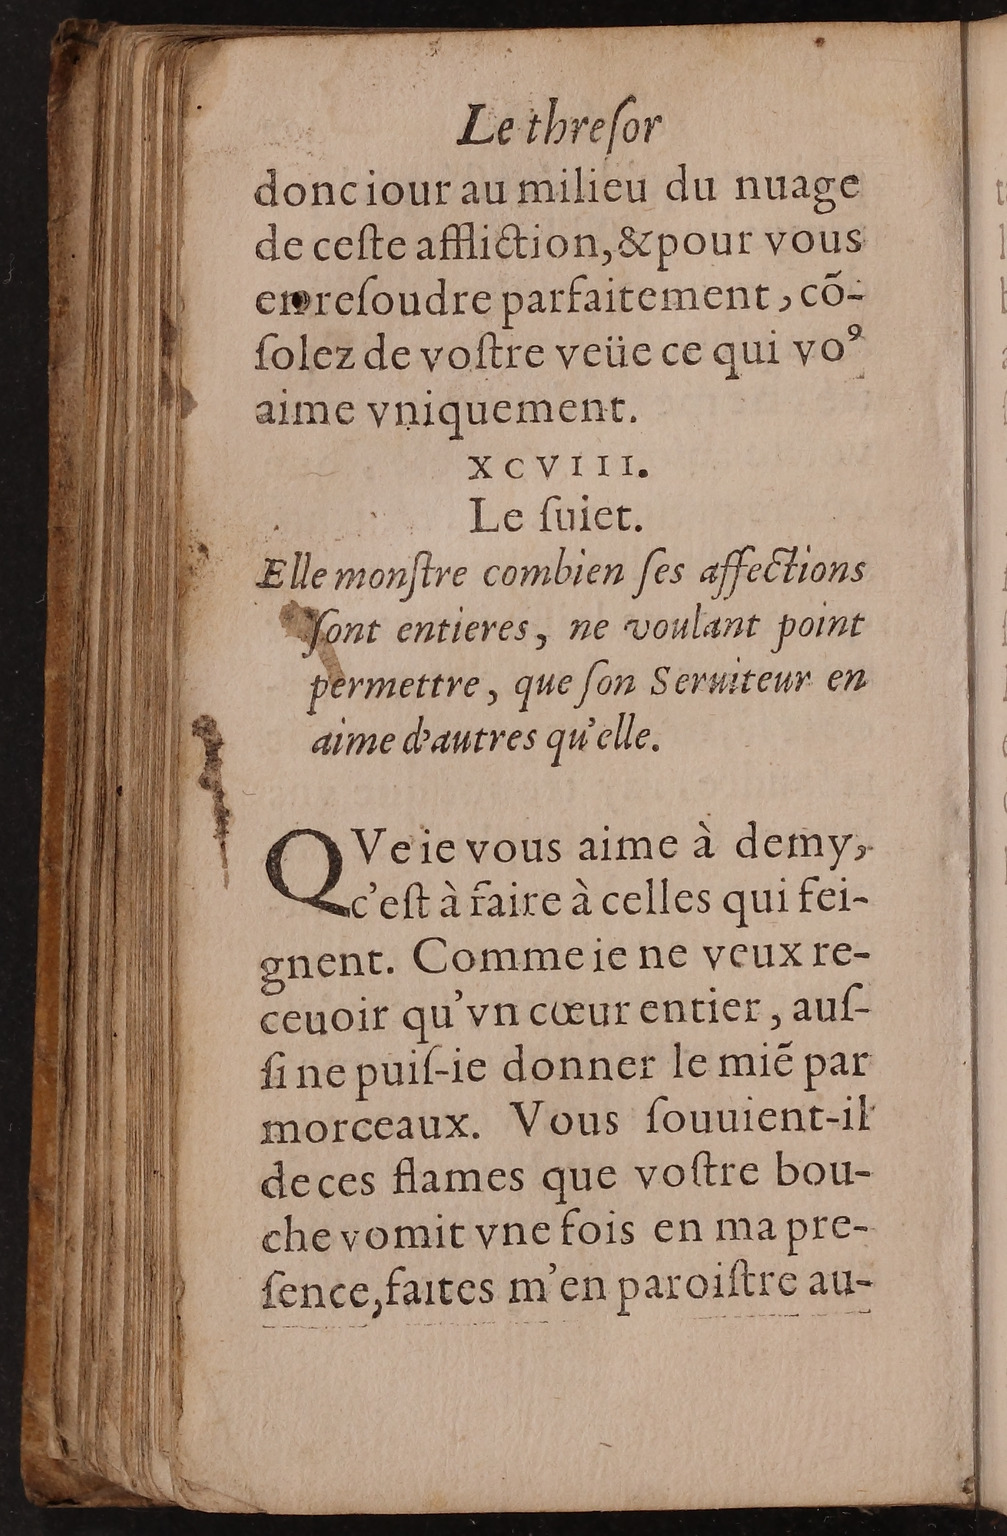 Le threſor
donc iour au milieu du nuage
de ceſte affliction, & pour vous
en reſoudre parfaitement, cõ-
ſolez de voſtre veüe ce qui voꝰ
aime vniquement.
XCVIII.
Le ſuiet.
Elle monſtre combien ſes affections
ſont entieres, ne voulant point
permettre, que ſon Seruiteur en
aime d'autres qu'elle.
QVe ie vous aime à demy,
c'eſt à faire à celles qui fei-
gnent. Comme ie ne veux re-
ceuoir qu'vn cœur entier, auſ-
ſi ne puiſ-ie donner le miẽ par
morceaux. Vous ſouuient-il
de ces flames que voſtre bou-
che vomit vne fois en ma pre-
ſence, faites m'en paroiſtre au-